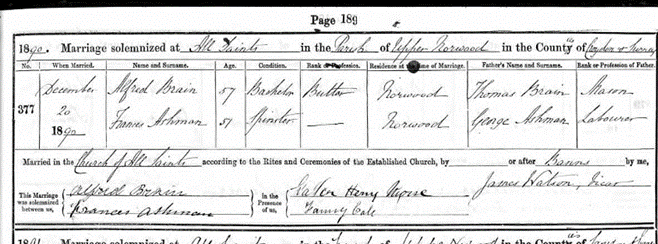 Page 189
1890. Marriage solemnized at All Saints in the Parish of Upper Norwood in the Counties Croydon & Surrey
No. When Married. Name and Surname. Age. Condition. Rank or Profession. Residence at the time of Marriage. Father's Name and Surname. Rank or Profession of Father.
377 December 20 1890 Alfred Brain 57 Bachelor Butler Norwood Thomas Brain Mason
Frances Ashman 51 Spinster — Norwood George Ashman Labourer
Married in the Church of All Saints according to the Rites and Ceremonies of the Established Church, by or after Banns by me,
James Watson, Vicar
This Marriage was solemnized between us, Alfred Brain Frances Ashman in the Presence of us, Henry Fanny
Marriage solemnized at in the of Norwood in the County